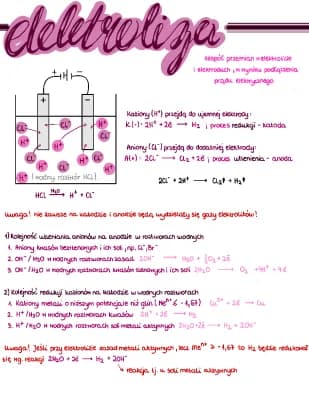 elektroliza
zespół przemian w elektrolicie
i elektrodach, w wyniku podłączenia
prądu elektrycznego
+ -
Kationy (H⁺) przejdą do ujemnej elektrody:
K (-): 2H⁺ + 2ē → H₂ ; proces redukcji - katoda
Aniony (Cl⁻) przejdą do dodatniej elektrody:
A(+): 2Cl⁻ → Cl₂ + 2ē ; proces utlenienia - anoda
2Cl⁻ + 2H⁺ → Cl₂↑ + H₂↑
Cl⁻ H⁺
(wodny roztwór HCl)
HCl H₂O→ H⁺ + Cl⁻
Uwaga! nie zawsze na katodzie i anodzie będą wydzielały się gazy elektrolitów!
1) Kolejność utleniania anionów na anodzie w roztworach wodnych
1. Aniony kwasów beztlenowych i ich soli, np. Cl⁻, Br⁻
2. OH⁻ / H₂O w wodnych roztworach zasad 2OH⁻ → H₂O + ½O₂ + 2ē
3. OH⁻ / H₂O w wodnych roztworach kwasów tlenowych i ich soli 2H₂O → O₂ + 4H⁺ + 4ē
2) Kolejność redukcji kationów na katodzie w wodnych roztworach
1. Kationy metali o niższym potencjale niż glin (Meⁿ⁺ ≤ -1,67) Cu²⁺ + 2ē → Cu
2. H⁺ / H₂O w wodnych roztworach kwasów 2H⁺ + 2ē → H₂
3. H⁺ / H₂O w wodnych roztworach soli metali aktywnych 2H₂O + 2ē → H₂ + 2OH⁻
Uwaga! Jeśli przy elektrolizie zasad metali aktywnych, lecz Meⁿ⁺ > -1,67 to H₂ będzie redukował
się wg. reakcji 2H₂O + 2ē → H₂ + 2OH⁻
↳ reakcja tj. u soli metali aktywnych